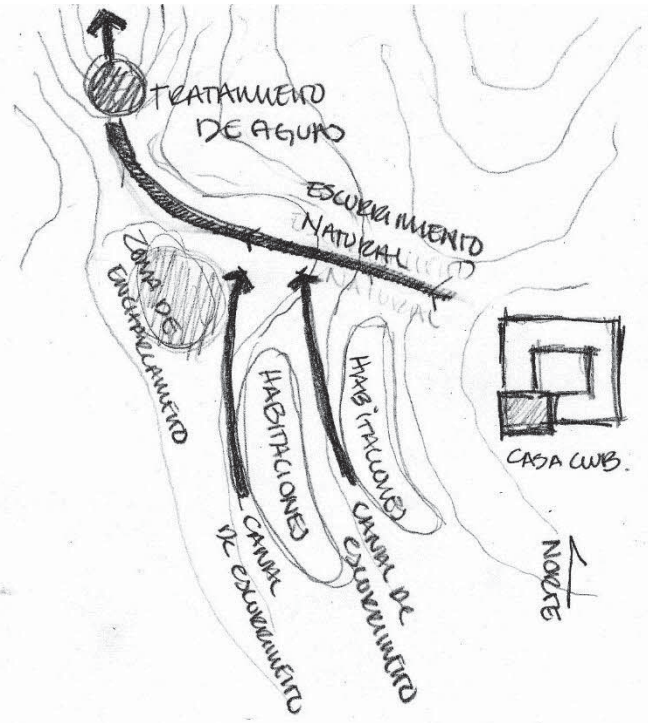 TRATAMIENTO
DE AGUAS
ESCURRIMIENTO
NATURAL
NATURAL
ZONA DE
ENCHARCAMIENTO
HABITACIONES
HABITACIONES
CASA CLUB.
CANAL
DE ESCURRIMIENTO
CANAL DE
ESCURRIMIENTO
NORTE